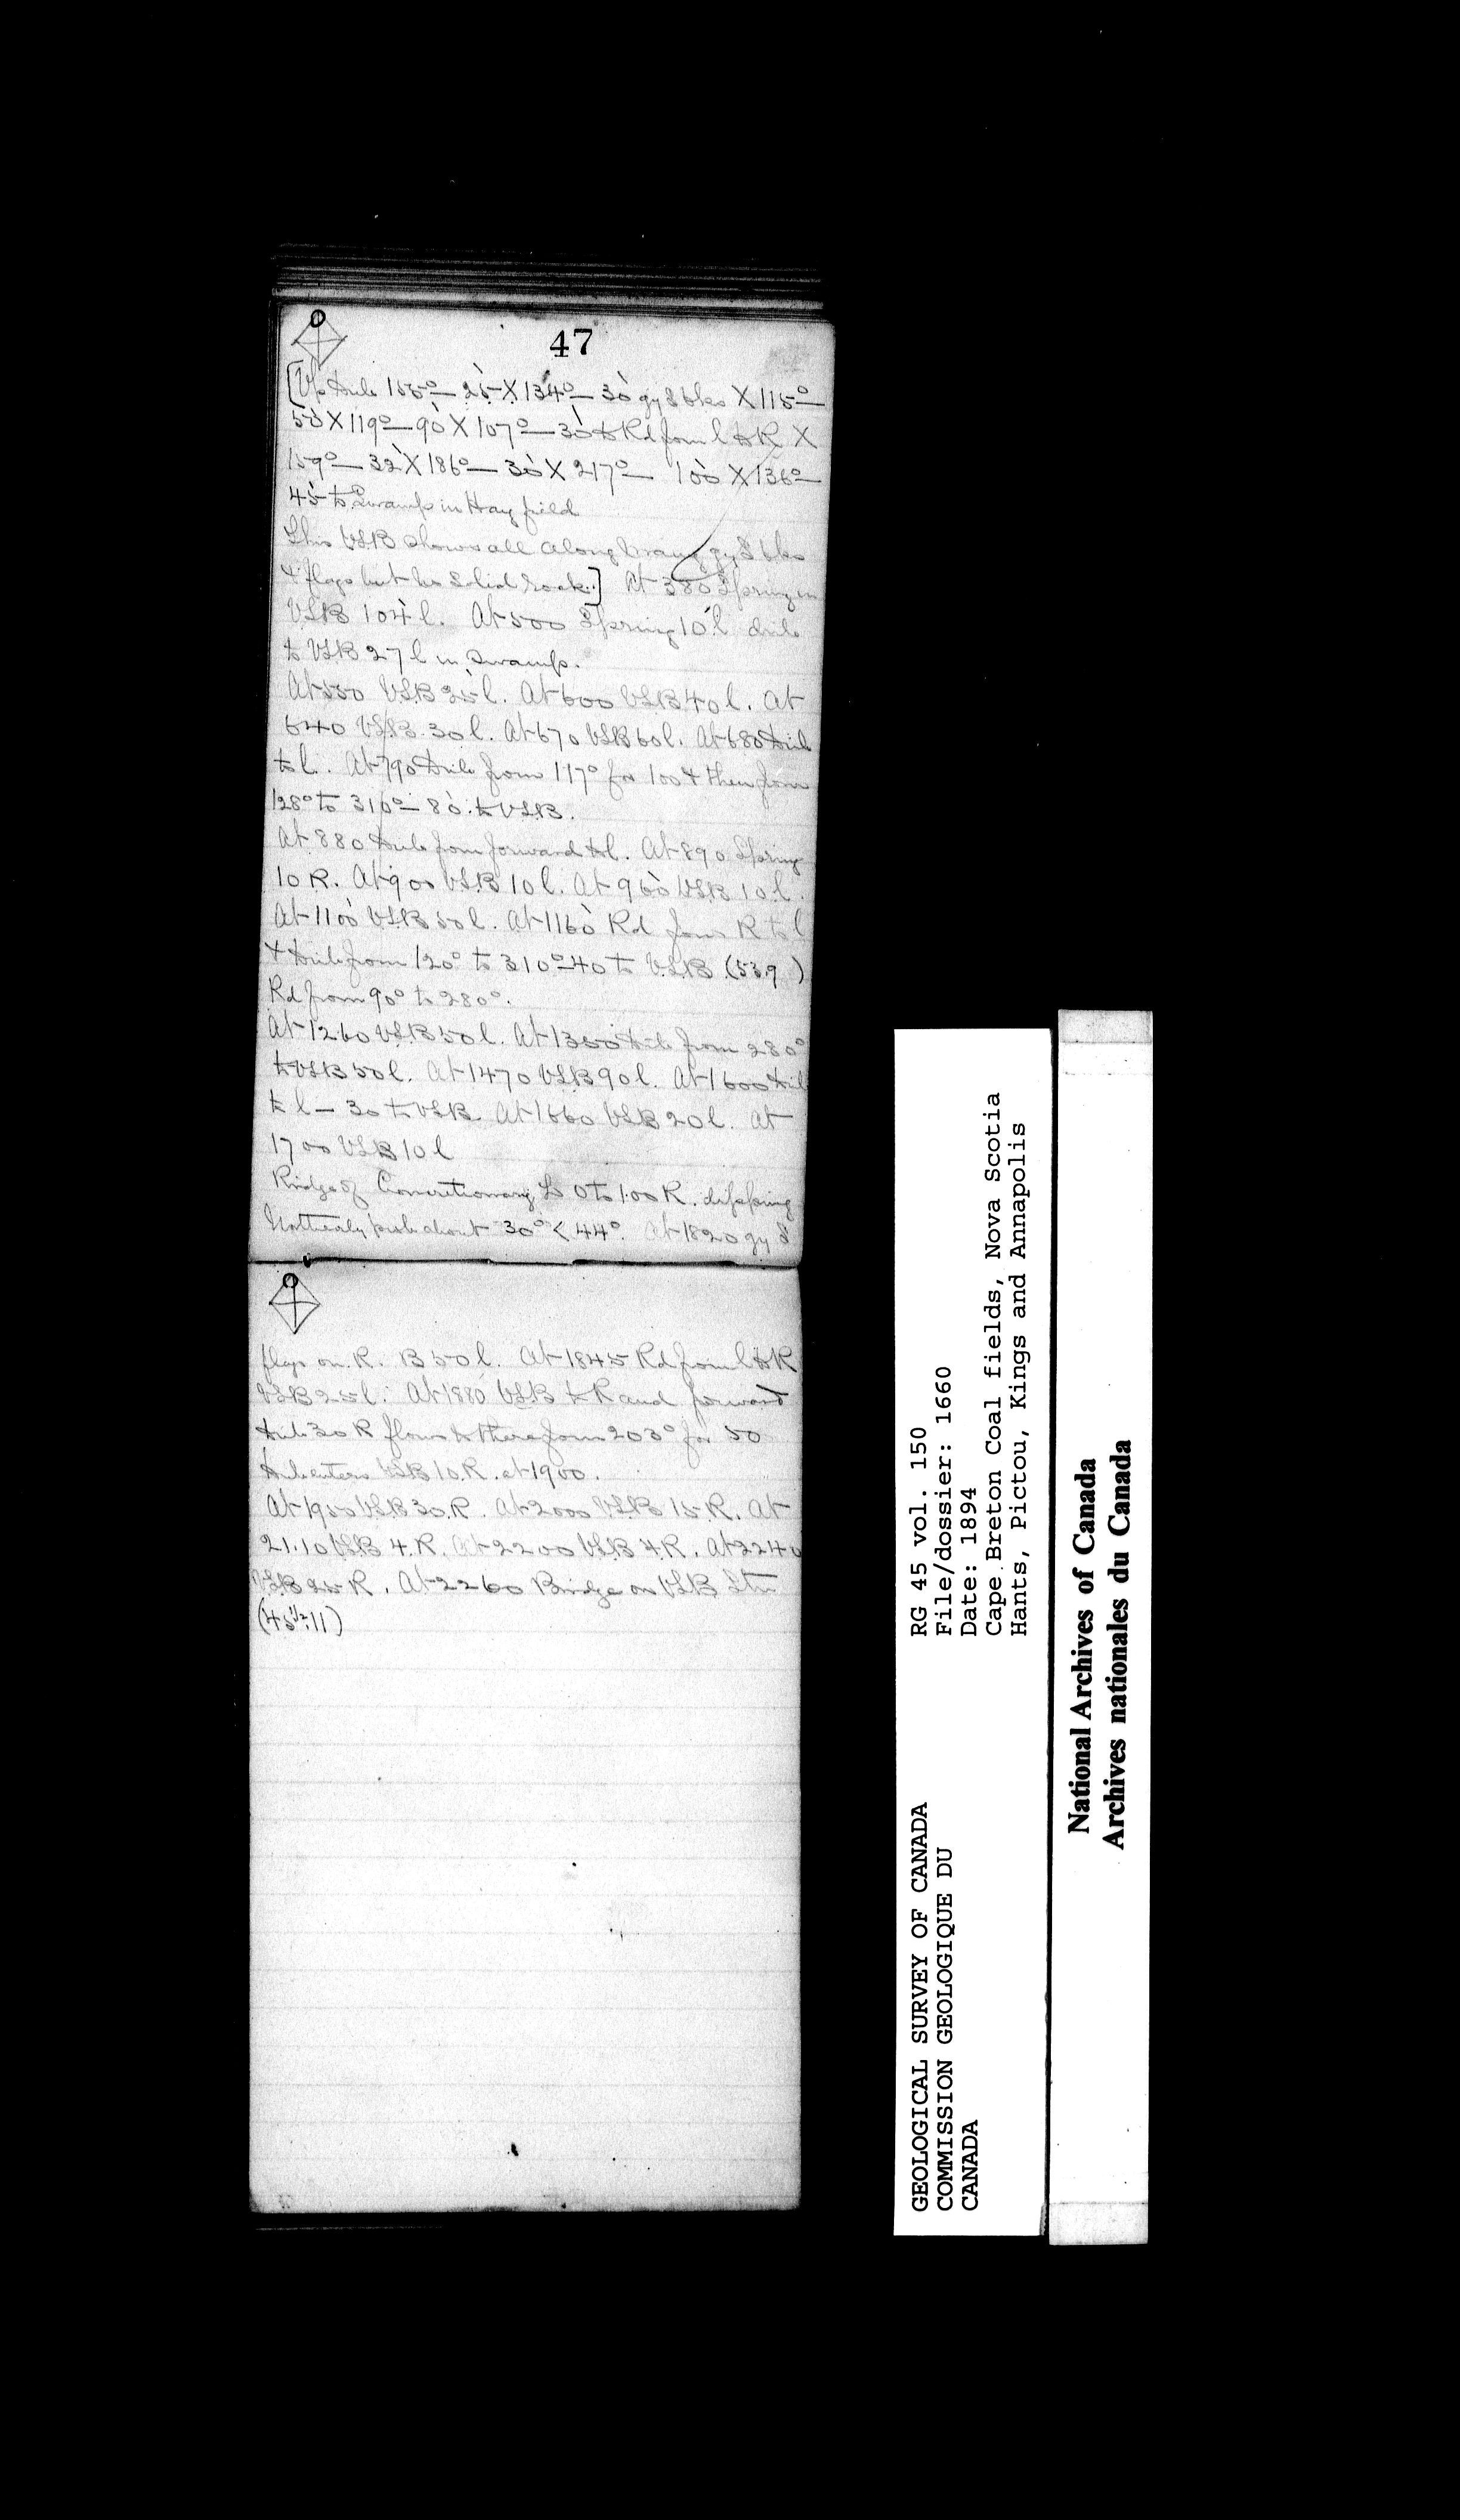 47
155° — 25 X 134° — 30 gy S bks X 115° —
50 X 119° — 90 X 107° — 30 to Rd from l to R X
159° — 32 X 186° — 30 X 217° — 100 X 136° —
45 to Swamp in Hay field
This VSB shows all along many gy S bks
& flags but no solid rock.] At 380 Spring in
VSB 104 l. At 500 Spring 10 l
to VSB 27 l in swamp.
At 550 VSB 25 l. At 600 VSB 40 l. At
640 VSB 30 l. At 670 VSB 60 l. At 680
to l. At 790 from 117° for 100 & then from
128° to 310° — 80 to VSB.
At 880 from forward to l. At 890 Spring
10 R. At 900 VSB 10 l. At 960 VSB 10 l.
At 1100 VSB 50 l. At 1160 Rd from R to l
& from 120° to 310° — 40 to VSB (53.9)
Rd from 90° to 280°.
At 1260 VSB 50 l. At 1350 from 280°
to VSB 50 l. At 1470 VSB 90 l. At 1600
to l — 30 to VSB. At 1660 VSB 20 l. At
1700 VSB 10 l
Ridge of Concretionary Ls 0 to 100 R. dipping
Northerly prob about 30° < 44°. At 1820 gy S
flags on R. B 50 l. At 1845 Rd from l to R
VSB 25 l. At 1880 VSB to R and forward
30 R flows to there from 203° for 50
enters VSB 10 R. at 1900.
At 1950 VSB 30 R. At 2000 VSB 15 R. At
2110 VSB 4 R. At 2200 VSB 4 R. At 2240
VSB 25 R. At 2260 Bridge on VSB
(45½.11)
RG 45 vol. 150
File/dossier: 1660
Date: 1894
Cape Breton Coal fields, Nova Scotia
Hants, Pictou, Kings and Annapolis
GEOLOGICAL SURVEY OF CANADA
COMMISSION GEOLOGIQUE DU
CANADA
National Archives of Canada
Archives nationales du Canada